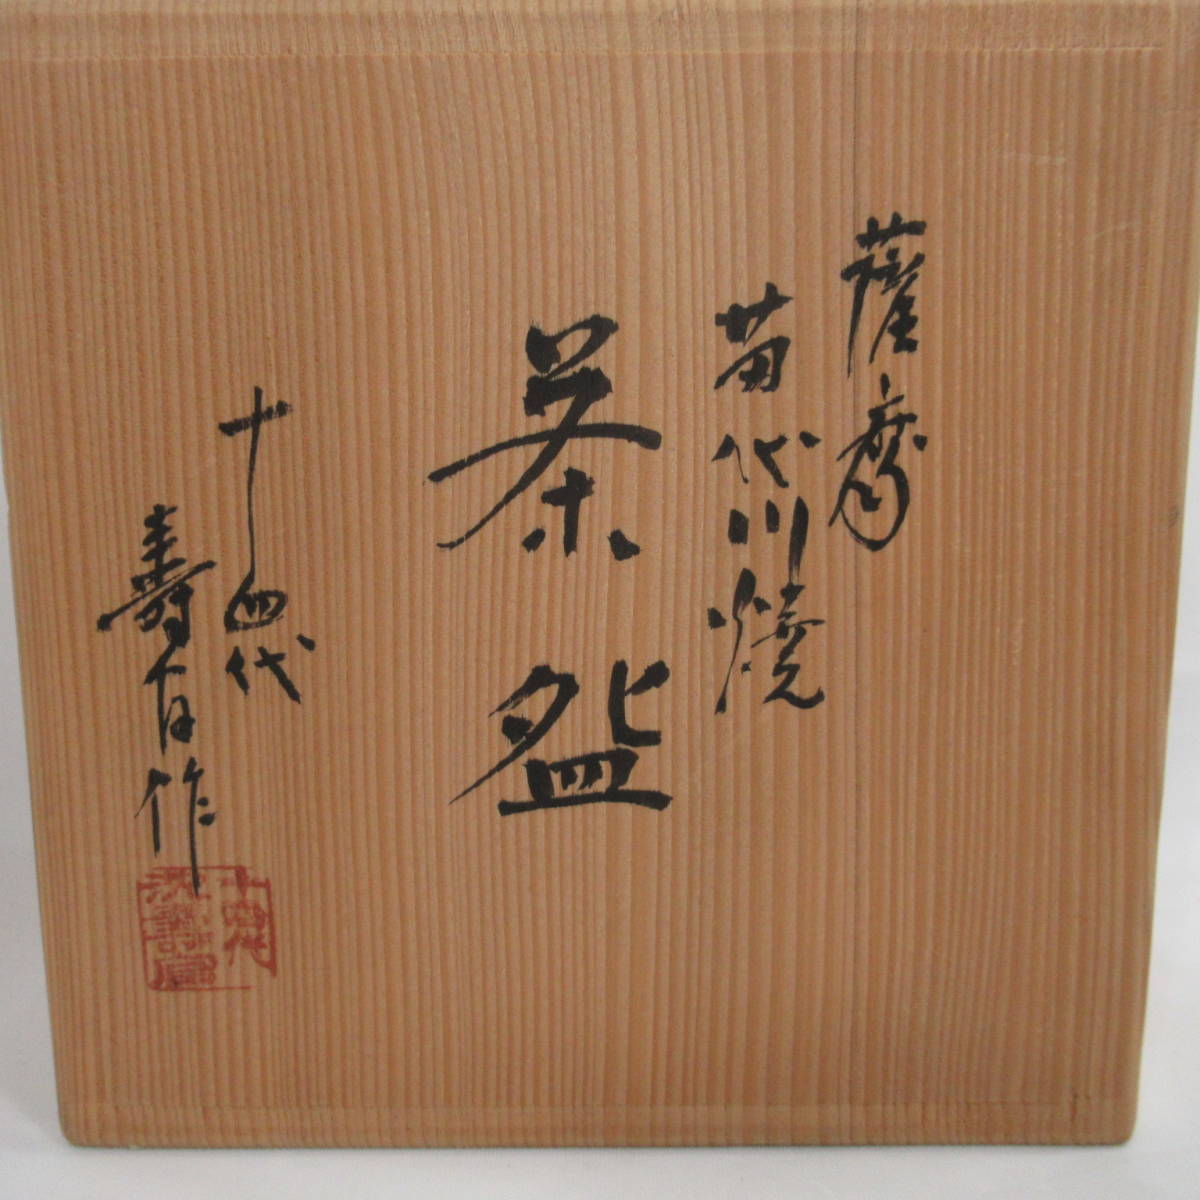 薩摩
苗代川焼
茶盌
十四代
寿官作
十四代
沈壽官